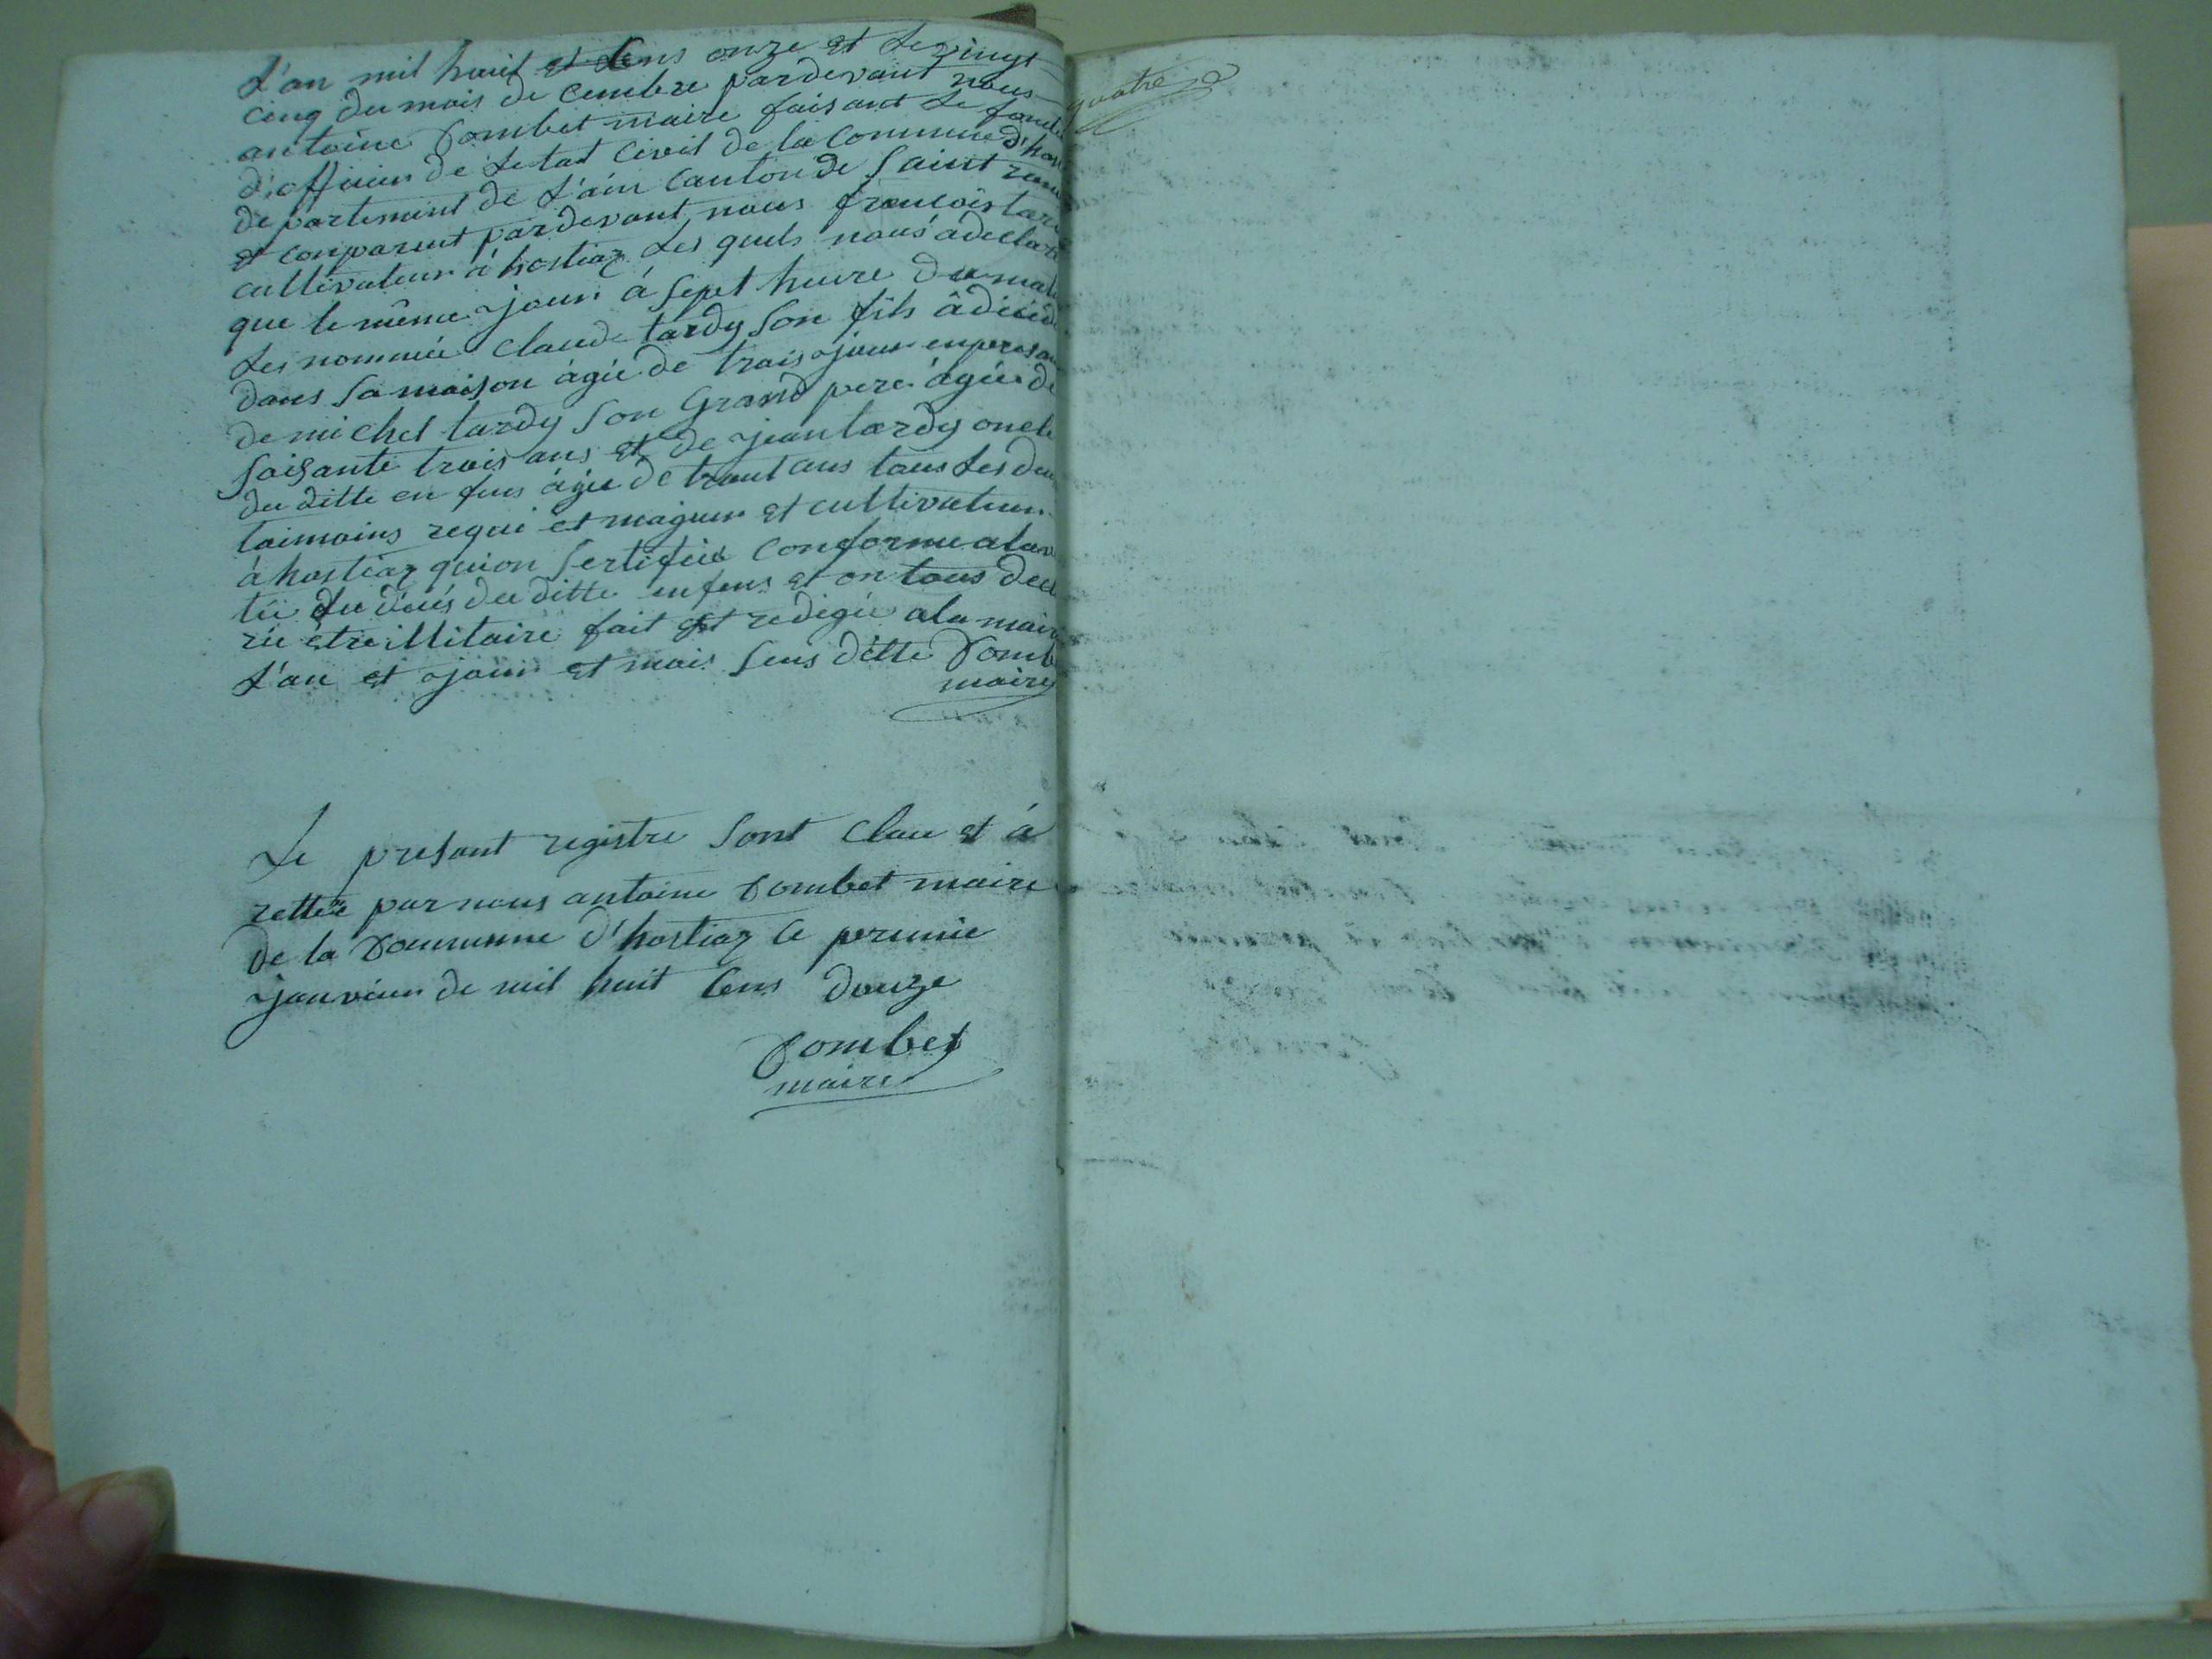 L'an mil huit et Cens onze et le vingt
cinq du mois de cembre pardevant nous
antoine Combet maire faisant le
d'officier de letat civil de la commune
departement de L'ain canton de Saint
et conparent pardevant nous francois
cultivateur à hostiaz les quels nous a declaré
que le même jour à sept heure du
les nommée Claude tardy son fils â dicidé
dans sa maison ágée de trais jour
de michel tardy son Grand pere ágée de
soisante trais ans et de jean tardy oncle
du ditte en fens ágée de trant ans tous les
taimoins requi et mageur et cultivateur
à hostiaz quion sertifiée conforme ala
tée du dicés du ditte enfens et on tous
rée etre illitaire fait et redigée ala
L'an et jour et mois sens ditte Comb
maire
Le presant registre sont clau et à
rettée par nous antoine Combet maire
de la Commune d'hostiaz le premie
janvier de mil huit Cens douze
Combet
maire
quatre